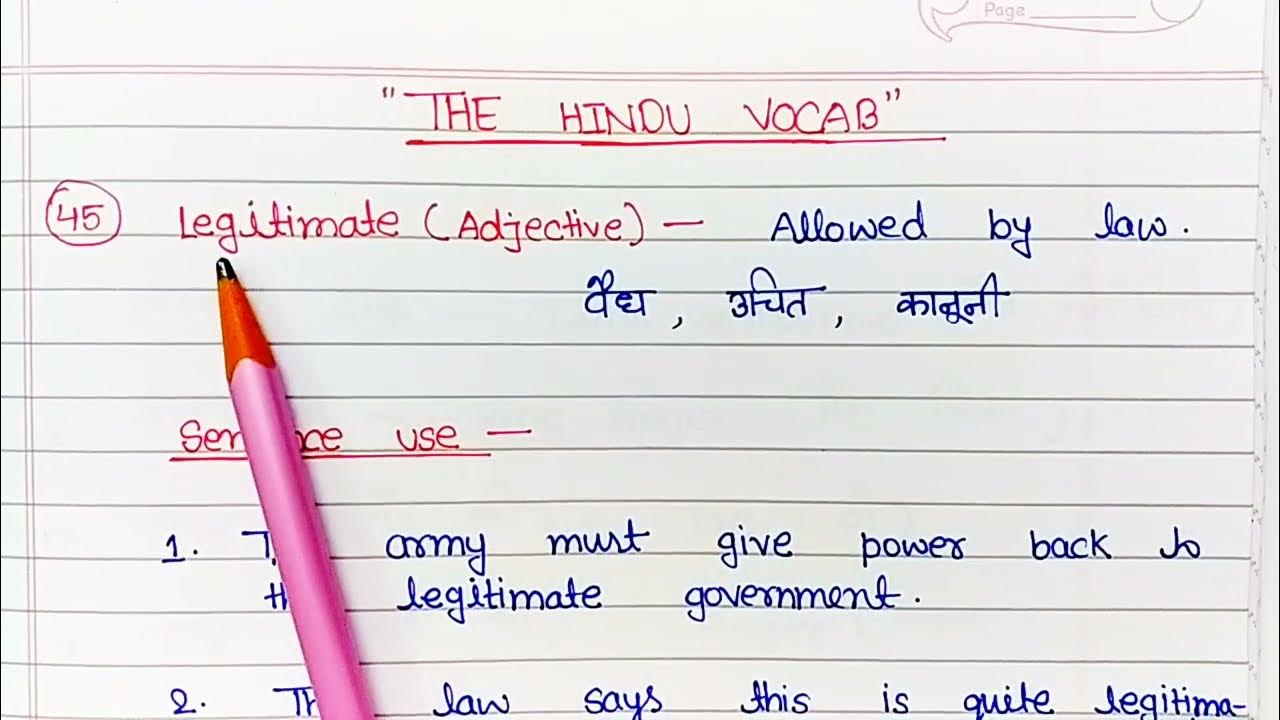 Page
"THE HINDU VOCAB"
45 Legitimate (Adjective) — Allowed by law.
वैध, उचित, कानूनी
use —
1. army must give power back to
legitimate government.
2. law says this is quite legitima-